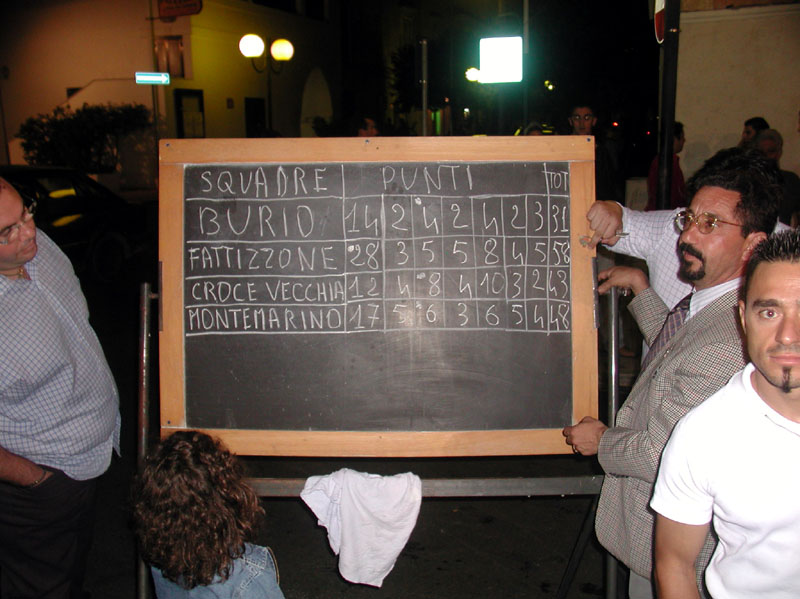 SQUADRE PUNTI TOT
BURIO 14 2 4 2 4 2 3 31
FATTIZZONE 28 3 5 5 8 4 5 58
CROCE VECCHIA 12 4 8 4 10 3 2 43
MONTEMARINO 17 5 6 3 6 5 4 48